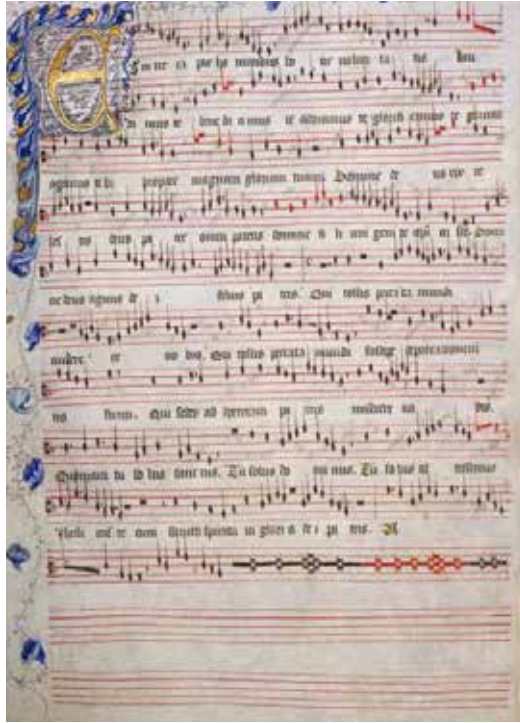 E
in ter ra pax ho minibus bo ne volun ta tis lau
mus te bene di ci mus te adoramus te glorifi camus te gratias
agimus ti bi propter magnam gloriam tuam. Domine de us rex ce
les tis deus pa ter omni potens domine fi li uni geni te
ne deus agnus de i filius pa tris. Qui tollis peccata mundi
miserere no bis. Qui tollis peccata mundi suscipe deprecationem
nos tram. Qui sedes ad dexteram pa tris miserere no bis.
Quoniam tu so lus sanc tus. Tu solus do mi nus. Tu so lus al tissimus
cum sancto spiritu in glori a de i pa tris. A